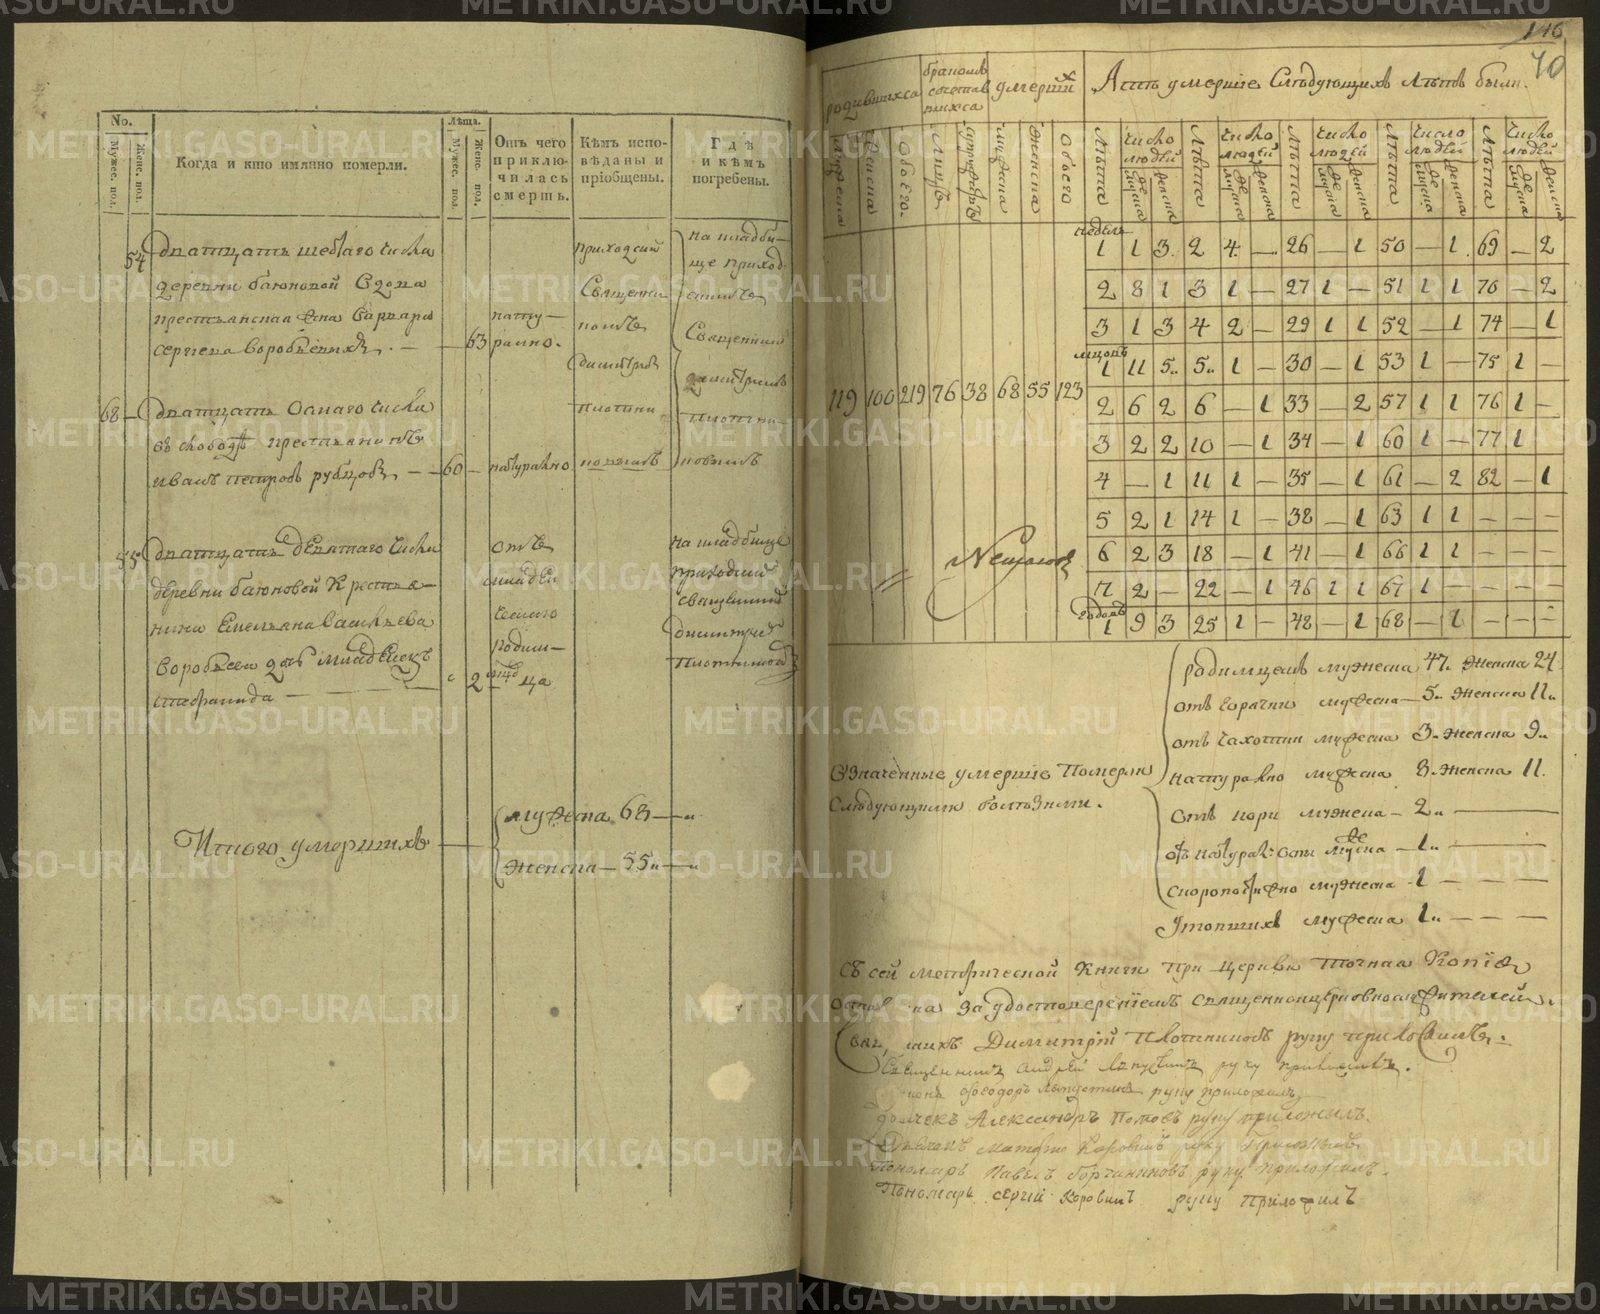 No.
Мужес. пол.
Женс. пол.
Когда и кто имянно померли.
Лѣта.
Мужес. пол.
Женс. пол.
Отъ чего приклю-
чилась смерть.
Кѣмъ испо-
вѣданы и
пріобщены.
Гдѣ
и кѣмъ
погребены.
54
дватцать шестаго числа
деревни баюновой
крестьянская жена варвара
сергиева воробьевыхъ — 63
нату-
рално.
приходский
Священни
комъ
димитриемъ
плотни
ковымъ
на кладби-
ще приход
скимъ
Священник
димитриемъ
плотни-
ковымъ
68 — дватцать осмаго числа
въ слободѣ крестьянинъ
иванъ петровъ рубцовъ — 60 — натурално
55
дватцать девятаго числа
деревни баюновой Крестья-
нина Емельяна васильева
воробьева дочь младенецъ
— 2
отъ
младен
ческаго
родим-
ца
на кладбище
приходский
священник
димитрий
плотников
Итого умершихъ — мужеска 68 —
женска — 55 —
116
70
родившихся
бракомъ
сочетав
шихся
умерших
А сіи умершіе Слѣдующихъ лѣтъ были.
мужеска
женска
обоего.
мужеска
женска
обоего
Лѣта
Число людей
Лѣта
Число людей
Лѣта
Число людей
Лѣта
Число людей
Лѣта
Число людей
119 100 219 76 38 68 55 123
недель
1 1 3 2 4 — 26 — 1 50 — 1 69 — 2
2 8 1 3 1 — 27 1 — 51 1 1 70 — 2
3 1 3 4 2 — 29 1 1 52 — 1 74 — 1
1 11 5 5 1 — 30 — 1 53 1 — 75 1 —
2 6 2 6 — 1 33 — 2 57 1 1 76 1 —
3 2 2 10 — 1 34 — 1 60 1 — 77 1
4 — 1 11 1 — 35 — 1 61 — 2 82 — 1
5 2 1 14 1 — 38 — 1 63 1 1 — — —
6 2 3 18 — 1 41 — 1 66 1 1 — — —
7 2 — 22 — 1 46 1 1 67 1 — — — —
годовъ
1 9 3 25 1 — 48 — 1 68 — 1 — — —
Означенные умершіе Померли
Слѣдующими болѣзнями.
родимцемъ мужеска 47. женска 24
отъ горячки мужеска — 5. женска 11
отъ чахотки мужеска 3. женска 9
натурално мужеска 8. женска 11.
отъ кори мужеска — 2
отъ натурал: оспы мужеска — 1
скоропостижно мужеска — 1
Утопшихъ мужеска 1
Съ сей метрической книги при Церкви точная Копія
оставлена за удостоверениемъ священноцерковнослужителей.
Димитрій Плотниковъ руку приложилъ.
Священникъ андрей лапустинъ руку приложилъ.
феодоръ лапустинъ руку приложилъ
дьячекъ Александръ Поповъ руку приложилъ.
дьячекъ Коровинъ руку приложилъ
Пономарь Павелъ руку приложилъ.
Пономарь сергий Коровинъ руку приложилъ
METRIKI.GASO-URAL.RU